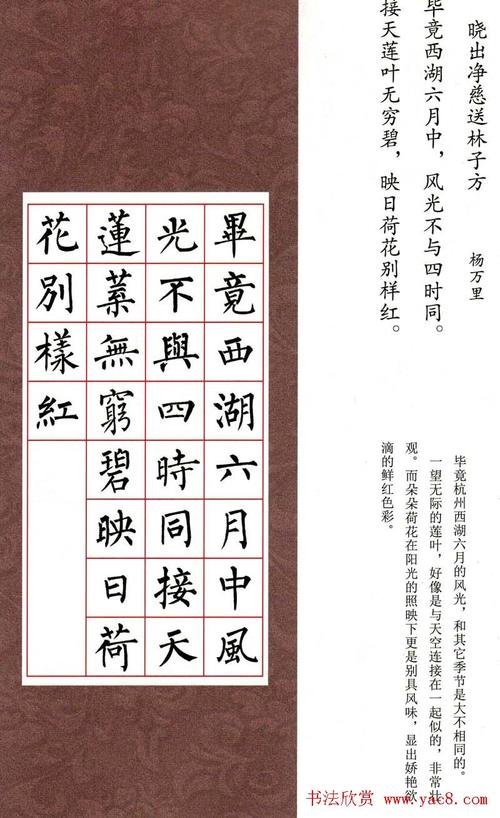 晓出净慈送林子方
杨万里
毕竟西湖六月中，风光不与四时同。
接天莲叶无穷碧，映日荷花别样红。
毕竟杭州西湖六月的风光，和其它季节是大不相同的。
一望无际的莲叶，好像是与天空连接在一起似的，非常壮
观。而朵朵荷花在阳光的照映下更是别具风味，显出娇艳欲
滴的鲜红色彩。
畢竟西湖六月中風
光不與四時同接天
蓮葉無窮碧映日荷
花別樣紅
书法欣赏 www.yac8.com